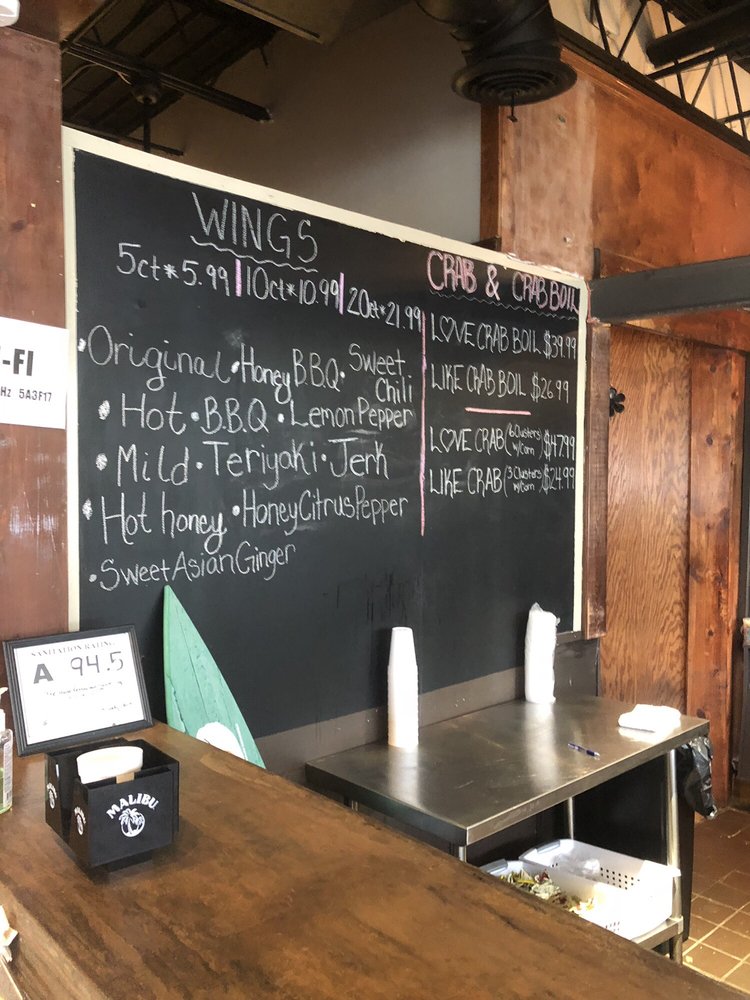 WINGS
5ct*5.99|10ct*10.99|20ct*21.99
•Original •Honey B.B.Q• Sweet Chili
•Hot •B.B.Q •Lemon Pepper
•Mild •Teriyaki •Jerk
•Hot honey •Honey Citrus Pepper
•Sweet Asian Ginger
CRAB & CRAB BOIL
L♡VE CRAB BOIL $39.99
LIKE CRAB BOIL $26.99
L♡VE CRAB (6 Clusters w/corn) $47.99
LIKE CRAB (3 Clusters w/corn) $24.99
-FI
Hz 5A3F17
SANITATION RATING
A 94.5
MALIBU